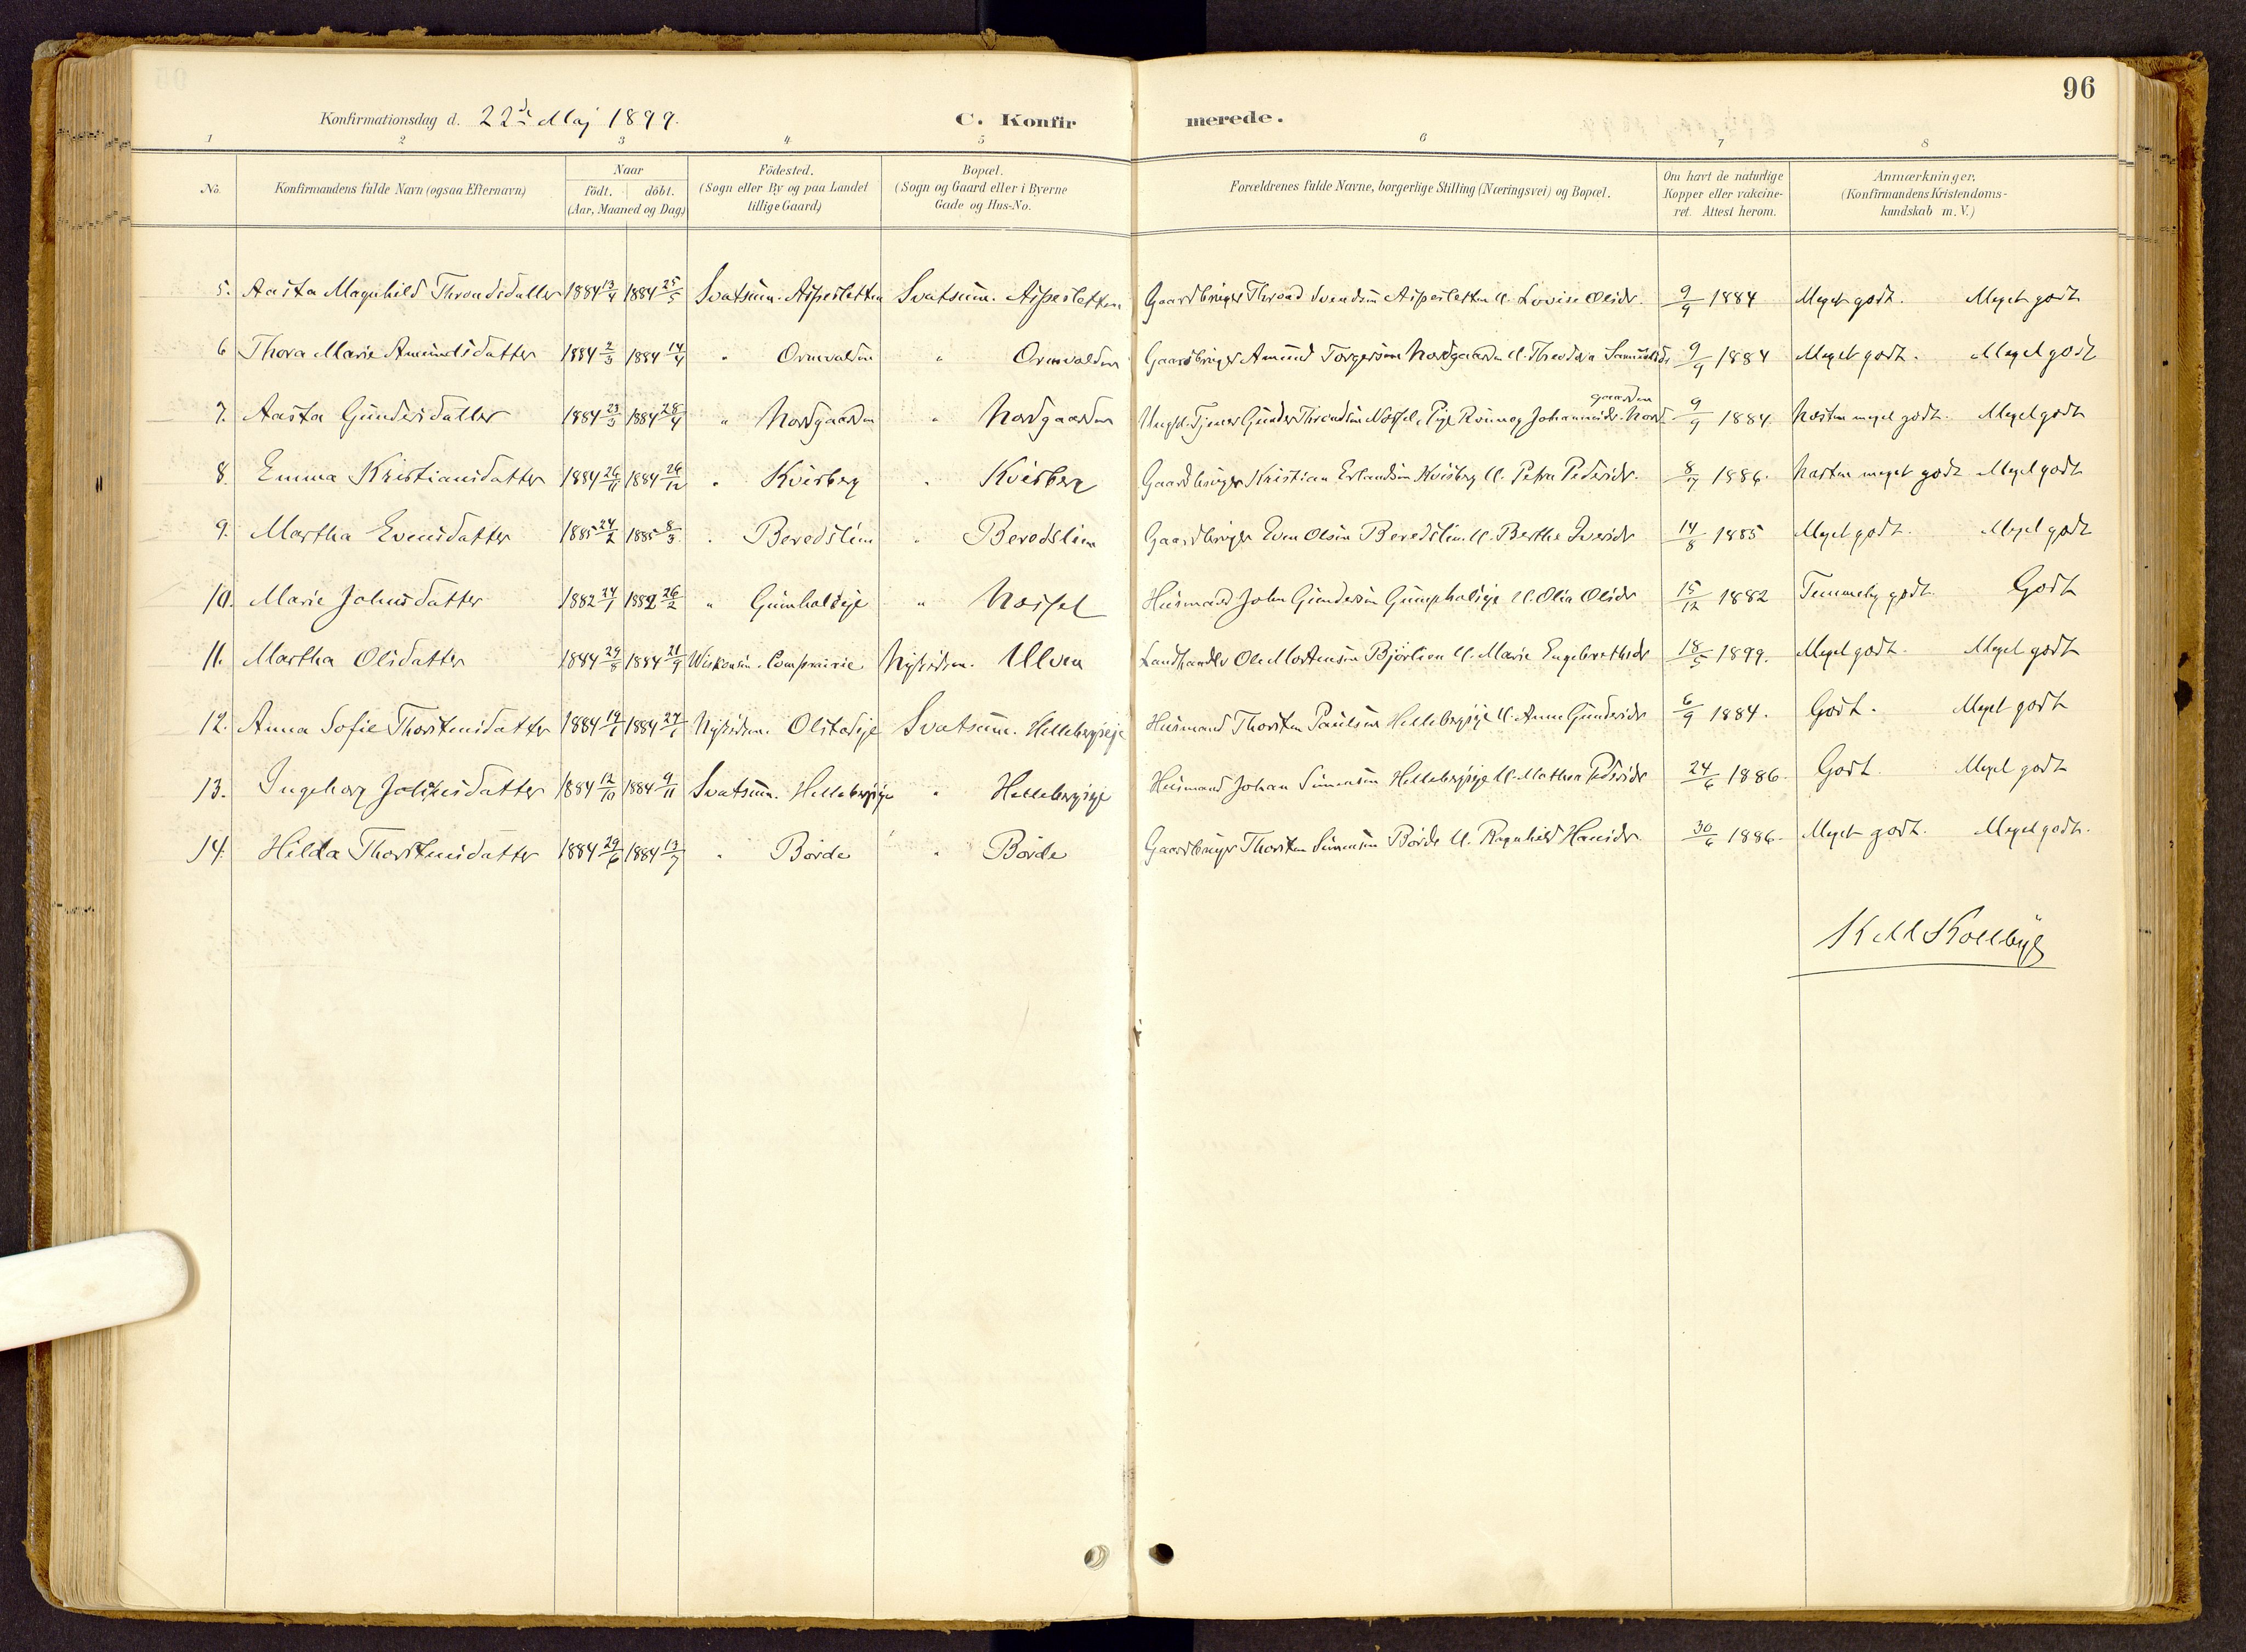 96
Konfirmationsdag d. 22de Maj 1899. C. Konfir merede.
1 2 3 4 5 6 7 8
No. Konfirmandens fulde Navn (ogsaa Efternavn) Naar født. døbt. (Aar, Maaned og Dag.) Fødested. (Sogn eller By og paa Landet tillige Gaard) Bopæl. (Sogn og Gaard eller i Byerne Gade og Hus-No. Forældrenes fulde Navne, borgerlige Stilling (Næringsvei) og Bopæl. Om havt de naturlige Kopper eller vakcineret. Attest herom. Anmærkninger. (Konfirmandens Kristendomskundskab m. V.)
5. Aasta Magnhild Throndsdatter 1884 13/4 1884 25/5 Svatsum. Aspesletten Svatsum. Aspesletten Gaardbruger Thrond Svendsen Aspesletten & Lovise Olsdr. 9/9 1884 Meget godt. Meget godt
6 Thora Marie Amundsdatter 1884 2/3 1884 14/4 " Ormvolden " Ormvolden Gaardbruger Amund Torgersen Nordgaarden & Theodora Samuelsdr 9/9 1884 Meget godt. Meget godt
7. Aasta Gundersdatter 1884 23/3 1884 28/4 " Nordgaarden " Nordgaarden Ungk. Tjener Gunder Throndsen & Pige Rønnog Johannesdr. Nordgaarden 9/9 1884. Næsten meget godt. Meget godt
8. Emma Kristiansdatter 1884 26/11 1884 26/12 " Kvisberg " Kvisberg Gaardbruger Kristian Erlandsen Kvisberg & Petra Pedersdr. 8/7 1886. Næsten meget godt Meget godt
9. Martha Evensdatter 1885 24/2 1885 8/3. " Beredslien " Beredslien Gaardbruger Even Olsen Beredslien & Berthe Iversdr 14/8 1885 Meget godt. Meget godt
10. Marie Johnsdatter 1882 24/1 1882 26/2 " " Husmand John Gundersen & Olia Olsdr 15/12 1882 Temmelig godt. Godt
11. Martha Olsdatter 1884 24/8 1884 21/9 Wiskonsin. Nykirken. Ulven Landhandler Ole Mortensen Bjørlien & Marie Engebretsdr 18/5 1899. Meget godt. Meget godt
12. Anna Sofie Thorstensdatter 1884 19/1 1884 27/1 Nykirken. Olstadeje Svatsum. Hellebergseje Husmand Thorsten Paulsen Hellebergseje & Anne Gundersdr 6/9 1884. Godt. Meget godt
13. Ingeborg Johansdatter 1884 12/10 1884 9/11 Svatsum. Hellebergseje " Hellebergseje Husmand Johan Simensen Hellebergseje & Mathea Pedersdr 24/6 1886. Godt. Meget godt
14. Hilda Thorstensdatter 1884 29/6 1884 13/7 " Børde " Børde Gaardbruger Thorsten Simensen Børde & Ragnhild Hansdr. 30/6 1886. Meget godt. Meget godt.